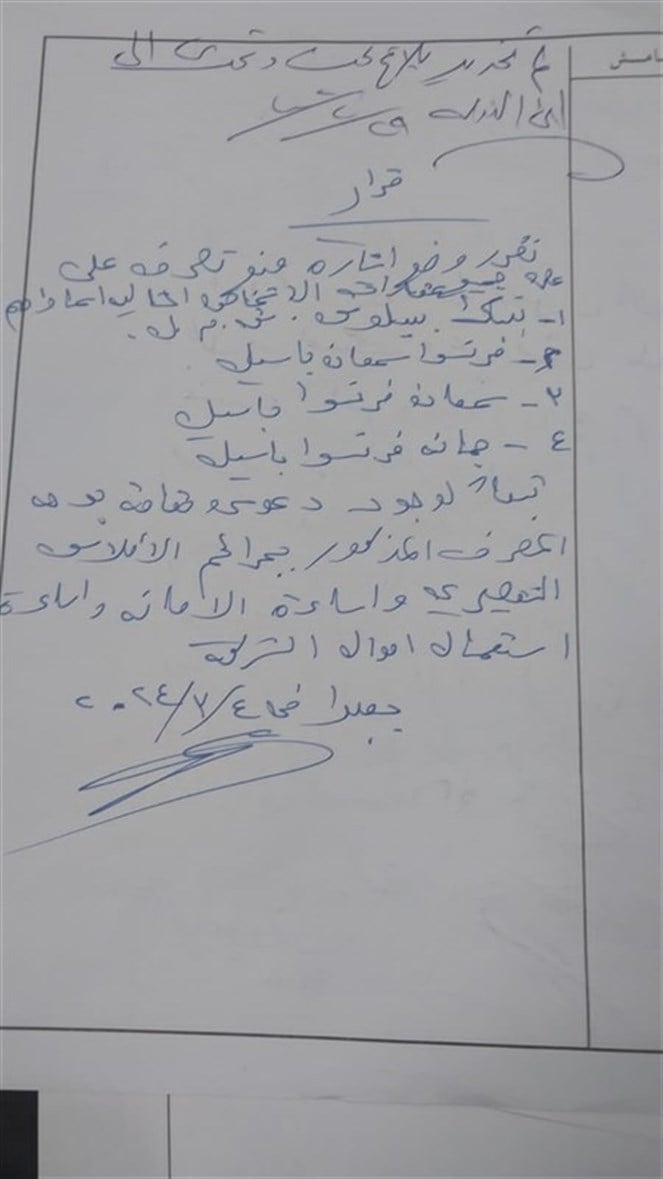 تم تحرير بلاغ بحث وتحري الى
امن الدولة
هامش
قرار
نقرر وضع اشارة منع تصرف على
جميع عقارات الاشخاص التالية اسماؤهم
١ـ بنك بيبلوس ش.م.ل.
٢ـ فرنسوا سمعان باسيل
٣ـ سمعان فرنسوا باسيل
٤ـ جمانة فرنسوا باسيل
تبعاً لوجود دعوى مقامة بوجه
المصرف المذكور بجرائم الافلاس
التقصيري واساءة الامانة واساءة
استعمال اموال الشركة
بعبدا في ٢٠٢٤/٣/٤